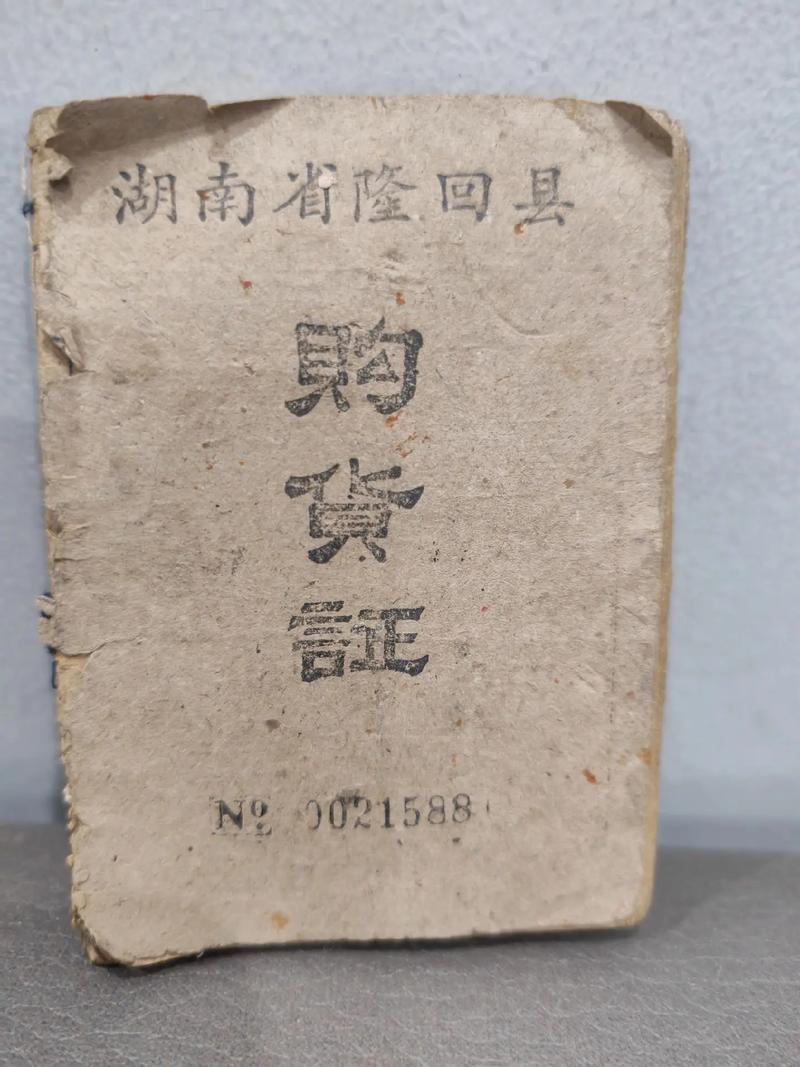 湖南省隆回县
购
貨
証
№ 0021588